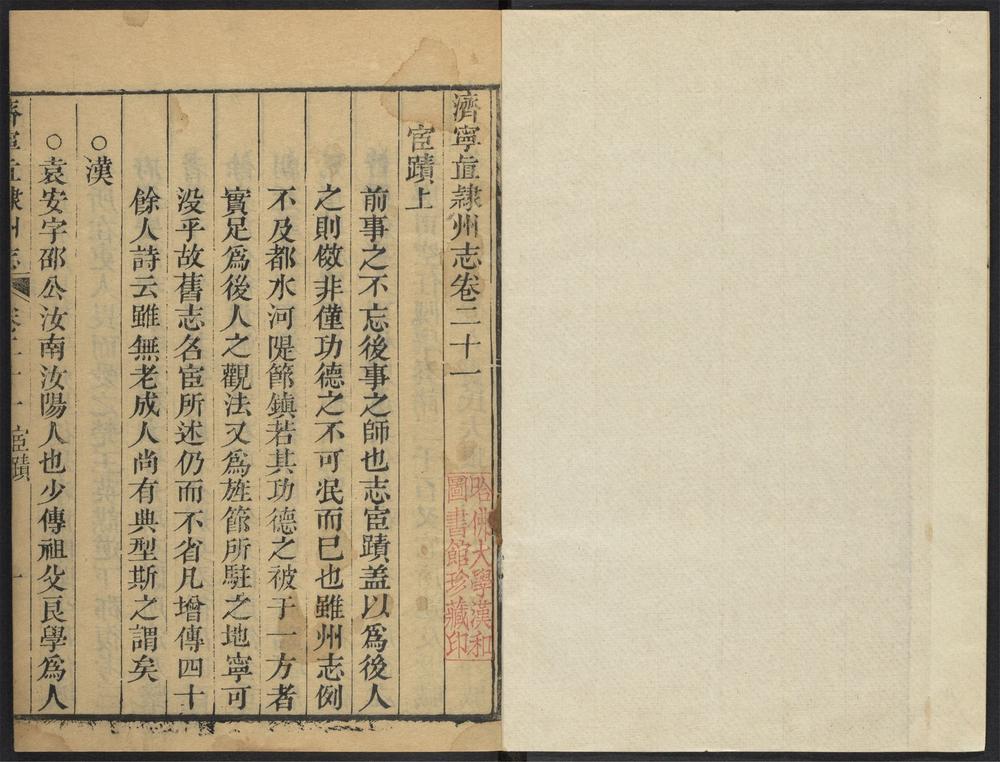 濟寧直隷州志卷二十一
宦蹟上
前事之不忘後事之師也志宦蹟盖以爲後人
之則傚非僅功德之不可泯而巳也雖州志例
不及都水河隄節鎮若其功德之被于一方者
實足爲後人之觀法又爲旌節所駐之地寧可
没乎故舊志名宦所述仍而不省凡增傳四十
餘人詩云雖無老成人尚有典型斯之謂矣
○漢
○袁安字邵公汝南汝陽人也少傳祖父良學爲人
濟寧直隷州志 卷二十一 宦蹟 一
哈佛大學漢和
圖書館珍藏印